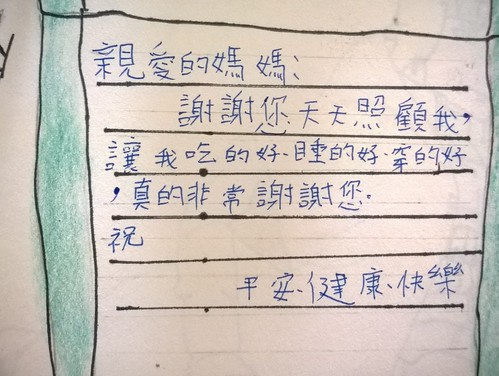 親愛的媽媽:
謝謝您天天照顧我,
讓我吃的好、睡的好、穿的好
,真的非常謝謝您。
祝
平安、健康、快樂